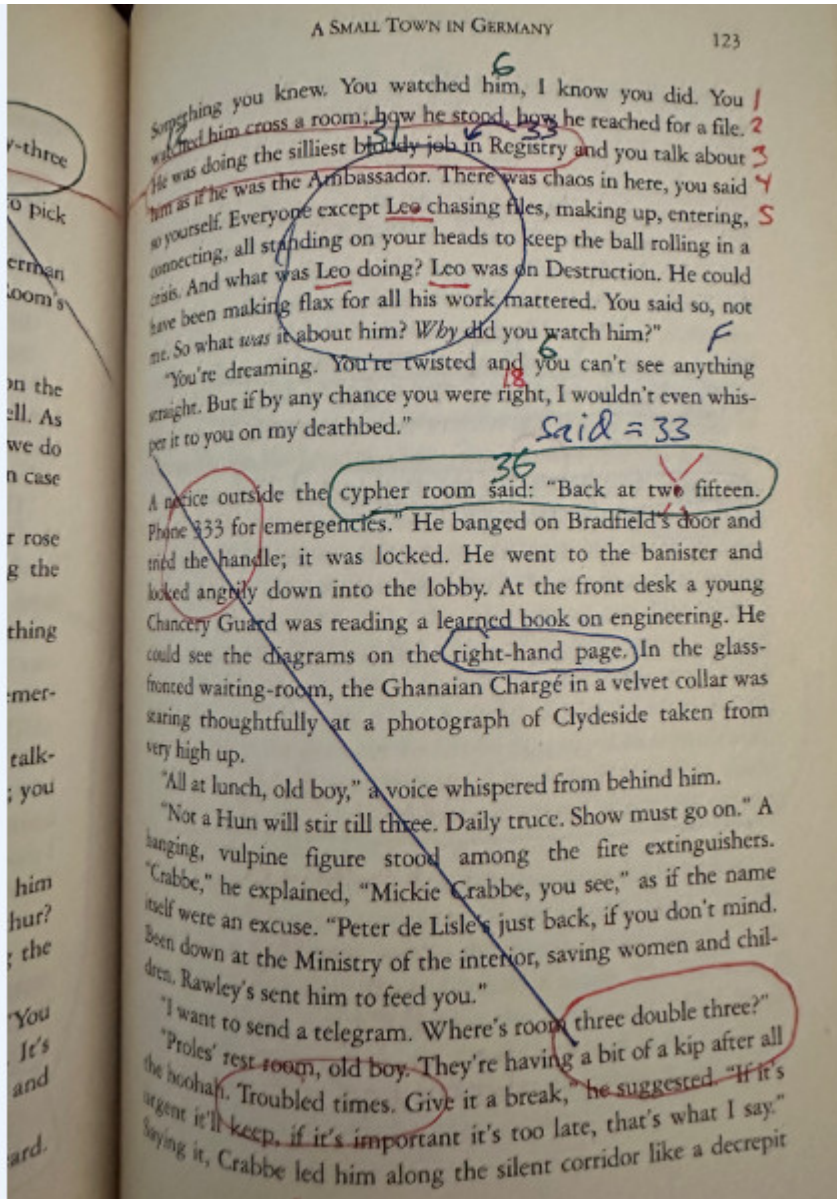 A SMALL TOWN IN GERMANY
123
Something you knew. You watched him, I know you did. You 1
watched him cross a room; how he stood, how he reached for a file. 2
He was doing the silliest bloody job in Registry and you talk about 3
him as if he was the Ambassador. There was chaos in here, you said 4
so yourself. Everyone except Leo chasing files, making up, entering, 5
connecting, all standing on your heads to keep the ball rolling in a
crisis. And what was Leo doing? Leo was on Destruction. He could
have been making flax for all his work mattered. You said so, not
me. So what was it about him? Why did you watch him?"
"You're dreaming. You're twisted and you can't see anything
straight. But if by any chance you were right, I wouldn't even whis-
per it to you on my deathbed."
said = 33
36
A notice outside the cypher room said: "Back at two fifteen.
Phone 333 for emergencies." He banged on Bradfield's door and
tried the handle; it was locked. He went to the banister and
looked angrily down into the lobby. At the front desk a young
Chancery Guard was reading a learned book on engineering. He
could see the diagrams on the right-hand page. In the glass-
fronted waiting-room, the Ghanaian Chargé in a velvet collar was
staring thoughtfully at a photograph of Clydeside taken from
very high up.
"All at lunch, old boy," a voice whispered from behind him.
"Not a Hun will stir till three. Daily truce. Show must go on." A
hanging, vulpine figure stood among the fire extinguishers.
"Crabbe," he explained, "Mickie Crabbe, you see," as if the name
itself were an excuse. "Peter de Lisle's just back, if you don't mind.
Been down at the Ministry of the interior, saving women and chil-
dren. Rawley's sent him to feed you."
"I want to send a telegram. Where's room three double three?"
"Proles' rest room, old boy. They're having a bit of a kip after all
the hoohah. Troubled times. Give it a break," he suggested. "If it's
urgent it'll keep, if it's important it's too late, that's what I say."
Saying it, Crabbe led him along the silent corridor like a decrepit
6
12
31
33
6
18
F
y-three
o pick
erman
Room's
on the
ell. As
we do
n case
r rose
g the
thing
emer-
talk-
; you
him
hur?
; the
"You
It's
and
ard.